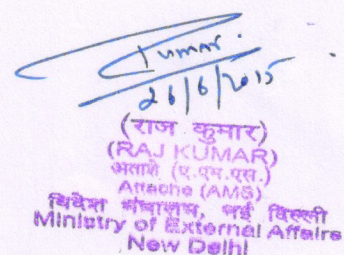 Kumar.
26/6/2015
(राज कुमार)
(RAJ KUMAR)
अताशे (ए.एम.एस.)
Attache (AMS)
विदेश मंत्रालय, नई दिल्ली
Ministry of External Affairs
New Delhi